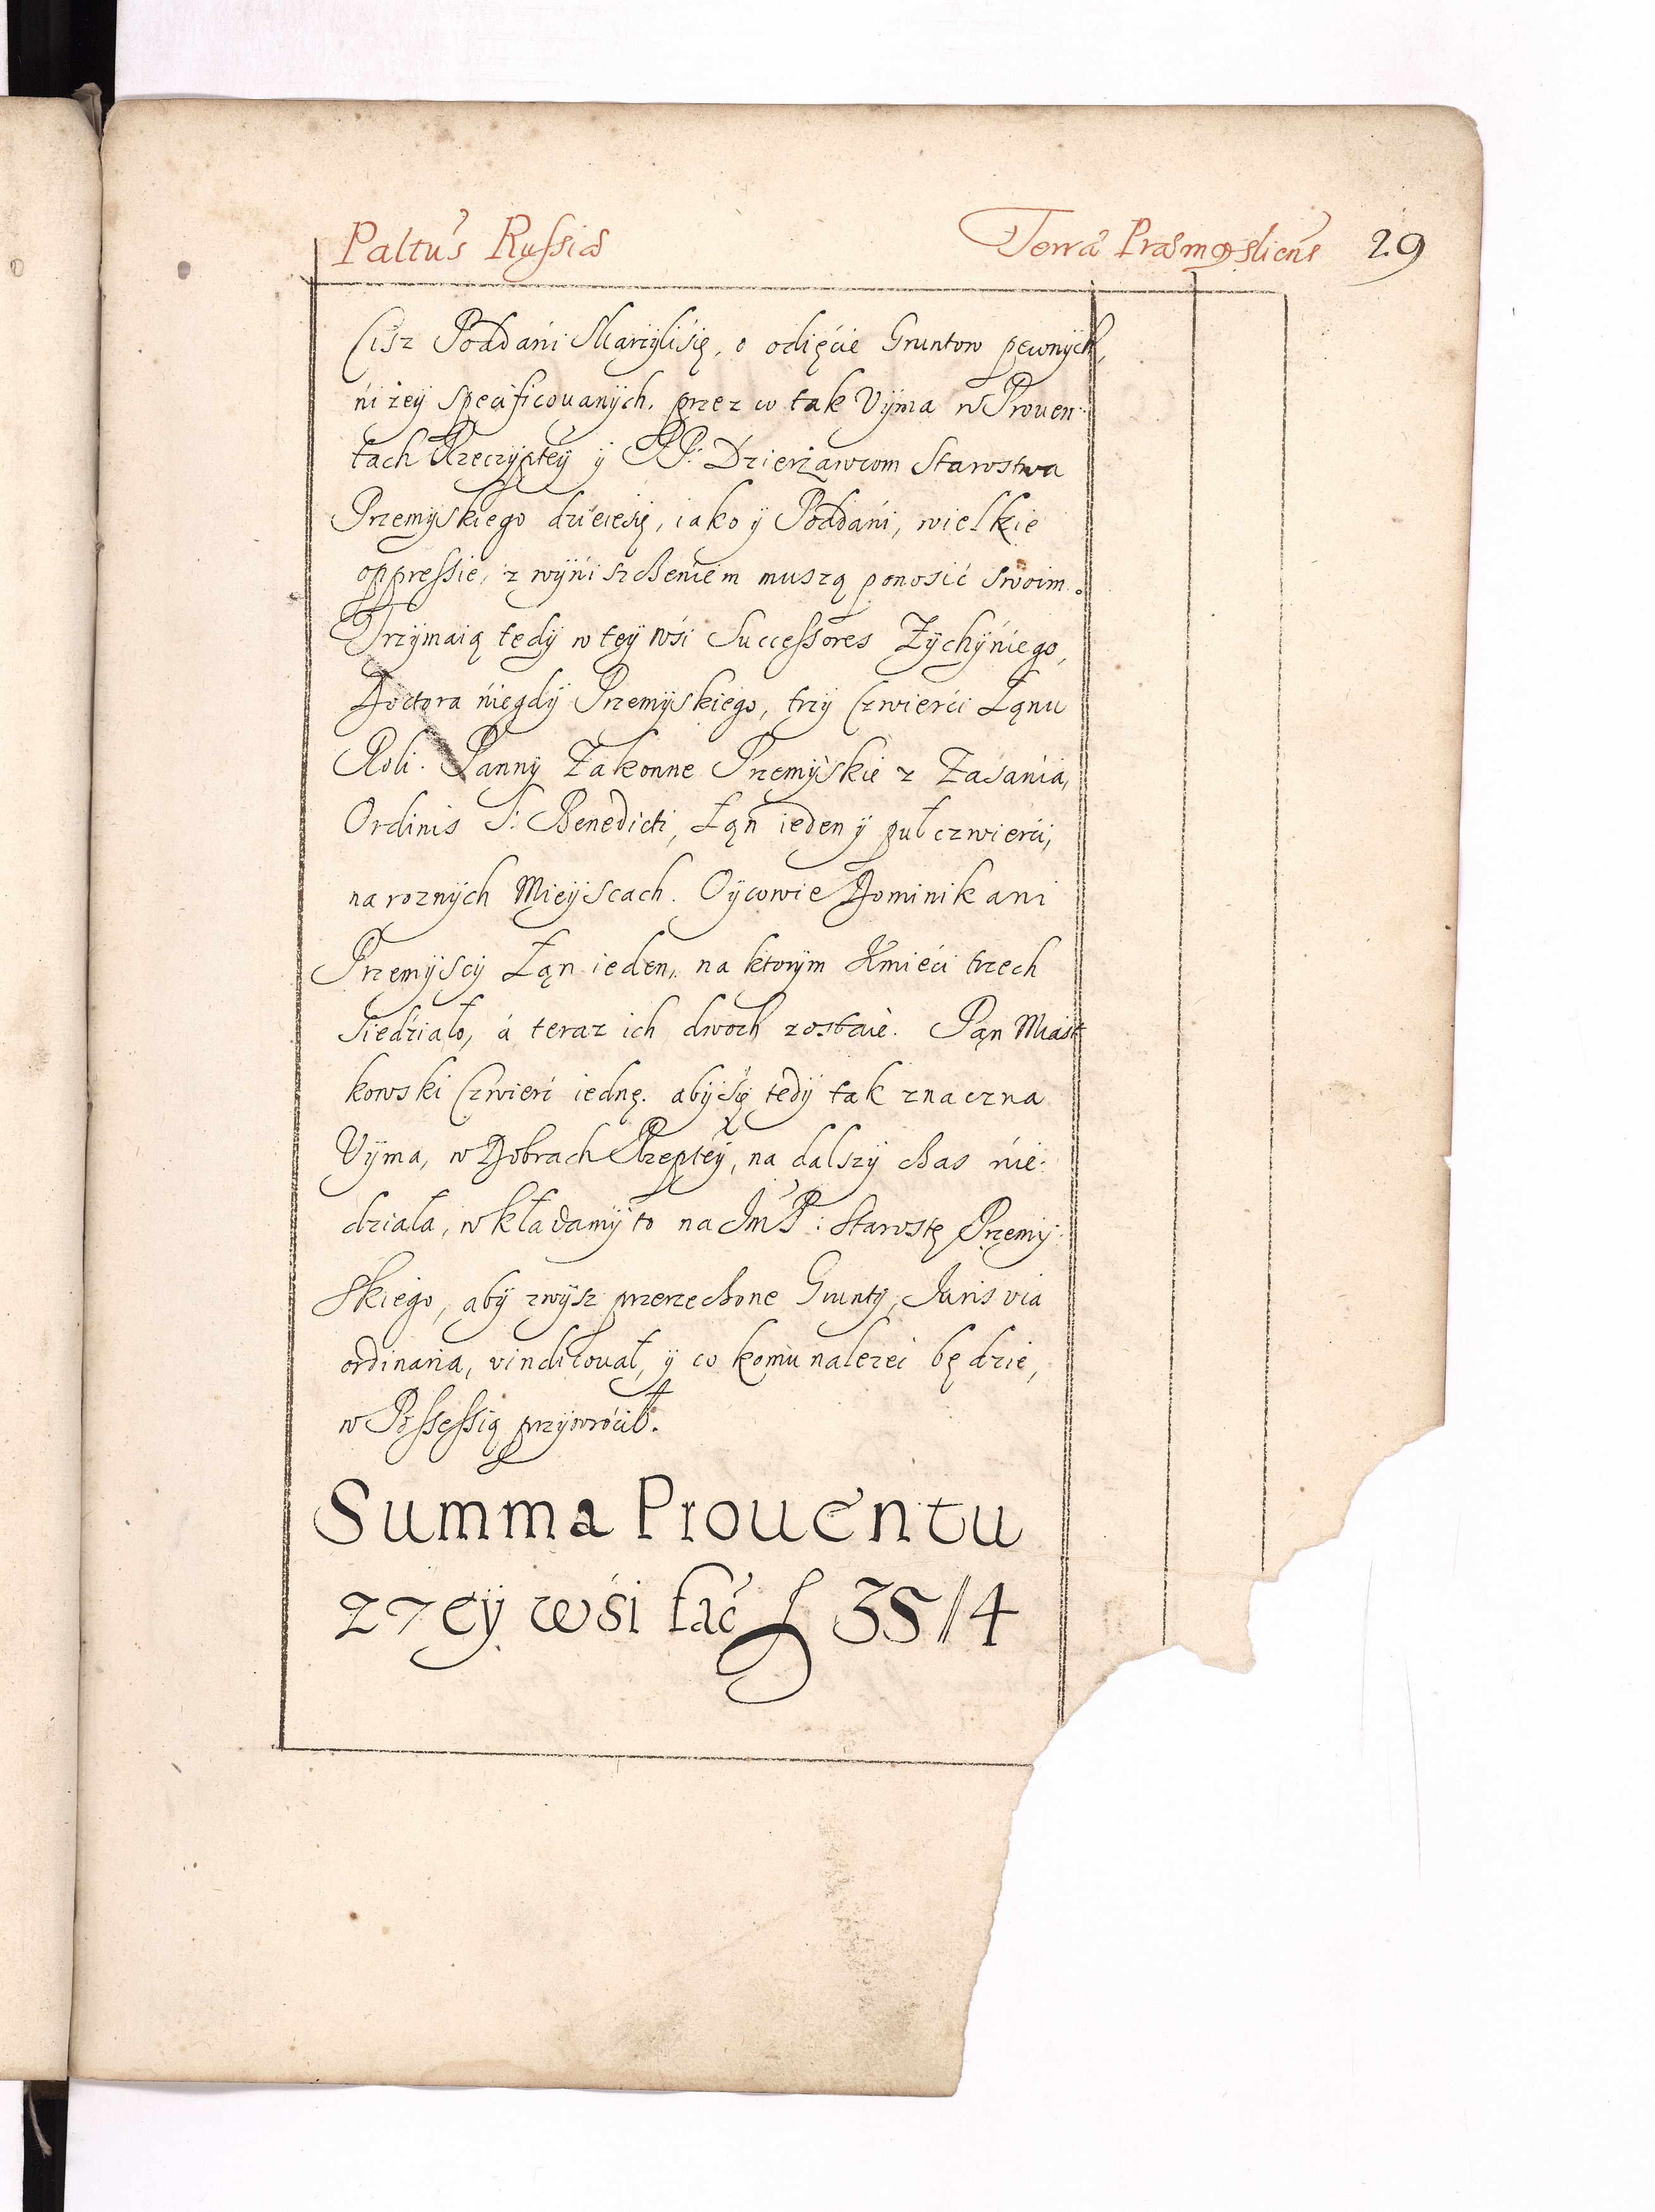 Paltus Russiæ
Terræ Præmysliens 29
Cisz Poddani Skarzylisię, o odięcie Gruntow pewnych,
niżey specificowanÿch, przez co tak Vÿma w Prouen:
tach Rzeczÿpteÿ ÿ PP: Dzierżawcom Starostwa
Przemÿskiego dzieiesię, iako ÿ Poddani, wielkie
oppressie, z wÿniszcżeniem muszą ponosić swoim.
Trzÿmaią tedÿ w teÿ wśi Successores Zÿchÿniego,
Doctora niegdÿ Przemÿskiego, trzÿ Czwierći Łanu
Roli. Pannÿ Zakonne Przemÿskie z Zasania,
Ordinis S: Benedicti, Łan ieden ÿ puł czwierći,
na roznÿch Mieÿscach. Oÿcowie Dominikani
Przemÿscÿ Łan ieden, na ktorÿm Kmieći trzech
Siedziało, á teraz ich dwoch zostaie. Pan Miast
kowski Czwierć iednę. abÿsię tedÿ tak znaczna
Vÿma, w Dobrach Rzeptеÿ, na dalszÿ czas nie:
działa, wkładamÿ to na JmP: Starostę Przemÿ:
skiego, abÿ zwÿsz przerzeczone Gruntÿ, Juris via
ordinaria, vindicował, ÿ co komu nalezeć będzie,
w Possessią przÿwroćił.
Summa Prouentu
z Teÿ wśi fać f 35//4